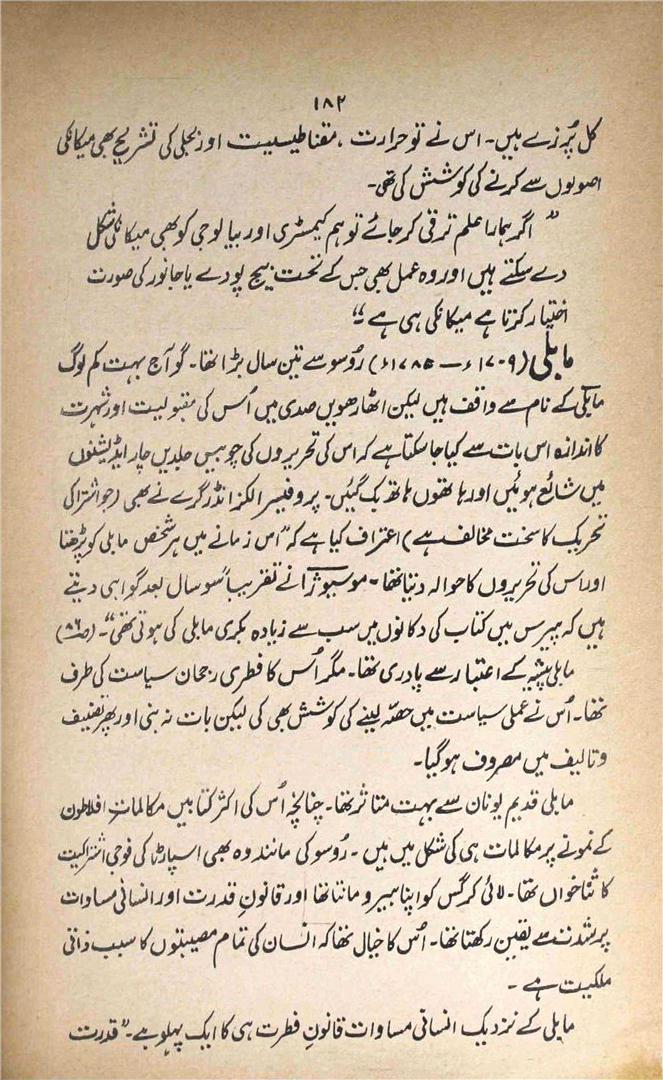 ۱۸۲
کل پُرزے ہیں۔ اس نے تو حرارت، مقناطیسیت اور بجلی کی تشریح بھی میکانکی
اصولوں سے کرنے کی کوشش کی تھی۔
"اگر ہمارا علم ترقی کر جائے تو ہم کیمسٹری اور بیالوجی کو بھی میکانکی شکل
دے سکتے ہیں اور وہ عمل بھی جس کے تحت بیج پودے یا جانور کی صورت
اختیار کرتا ہے میکانکی ہی ہے۔"
مابلی (۱۷۰۹ء — ۱۷۸۵ء) رُوسو سے تین سال بڑا تھا۔ گو آج بہت کم لوگ
مابلی کے نام سے واقف ہیں لیکن اٹھارھویں صدی میں اُس کی مقبولیت اور شہرت
کا اندازہ اس بات سے کیا جا سکتا ہے کہ اس کی تحریروں کی چوبیس جلدیں چار ایڈیشنوں
میں شائع ہوئیں اور ہاتھوں ہاتھ بک گئیں۔ پروفیسر الکزانڈر گرے نے بھی (جو اشتراکی
تحریک کا سخت مخالف ہے) اعتراف کیا ہے کہ "اس زمانے میں ہر شخص مابلی کو پڑھتا
اور اس کی تحریروں کا حوالہ دیتا تھا۔ موسیو ژانے تقریباً سو سال بعد گواہی دیتے
ہیں کہ پیرس میں کتاب کی دکانوں میں سب سے زیادہ بکری مابلی کی ہوتی تھی"۔ (ص ۸۶)
مابلی پیشہ کے اعتبار سے پادری تھا۔ مگر اُس کا فطری رجحان سیاست کی طرف
تھا۔ اُس نے عملی سیاست میں حصّہ لینے کی کوشش بھی کی لیکن بات نہ بنی اور پھر تصنیف
و تالیف میں مصروف ہو گیا۔
مابلی قدیم یونان سے بہت متاثر تھا۔ چنانچہ اُس کی اکثر کتابیں مکالماتِ افلاطون
کے نمونے پر مکالمات ہی کی شکل میں ہیں۔ رُوسو کی مانند وہ بھی اسپارٹا کی فوجی اشتراکیت
کا ثنا خواں تھا۔ لائی کرگس کو اپنا ہیرو مانتا تھا اور قانونِ قدرت اور انسانی مساوات
پر شدت سے یقین رکھتا تھا۔ اُس کا خیال تھا کہ انسان کی تمام مصیبتوں کا سبب ذاتی
ملکیت ہے۔
مابلی کے نزدیک انسانی مساوات قانونِ فطرت ہی کا ایک پہلو ہے۔ "قدرت